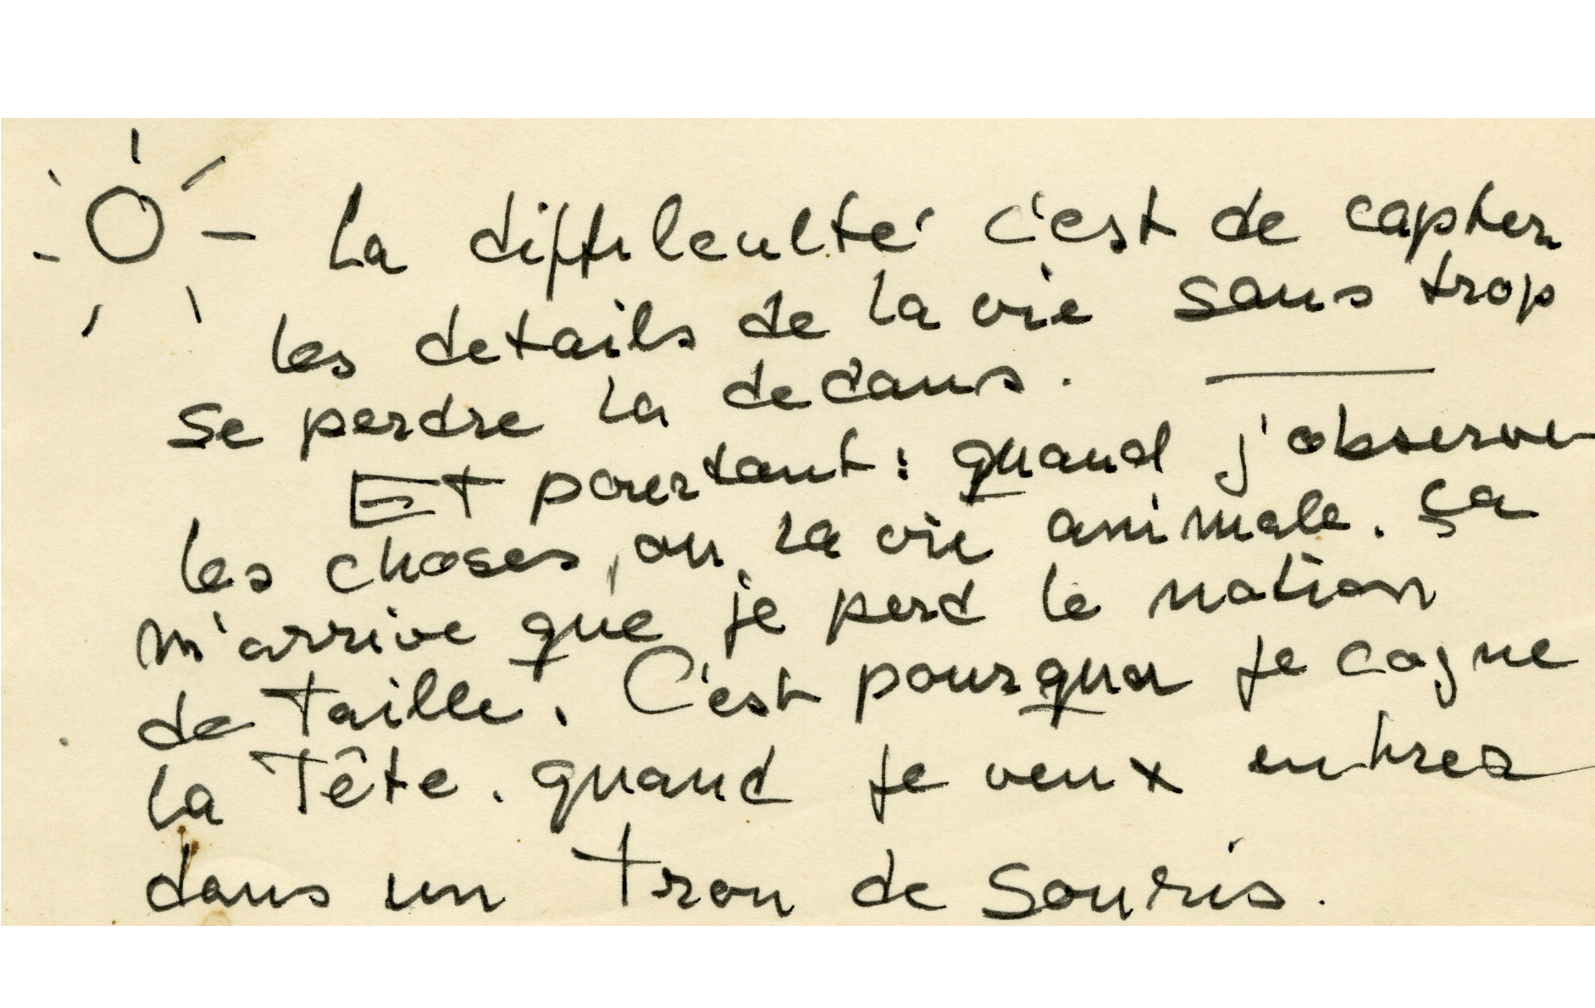 La diffileulté c'est de capter
les details de la vie sans trop
se perdre la dedans.
Et pourtant : quand j'observe
les choses, ou la vie animale. ça
m'arrive que je perd le notion
de taille. C'est pourquoi je cogne
la Tête. quand je veux entrer
dans un Trou de Souris.